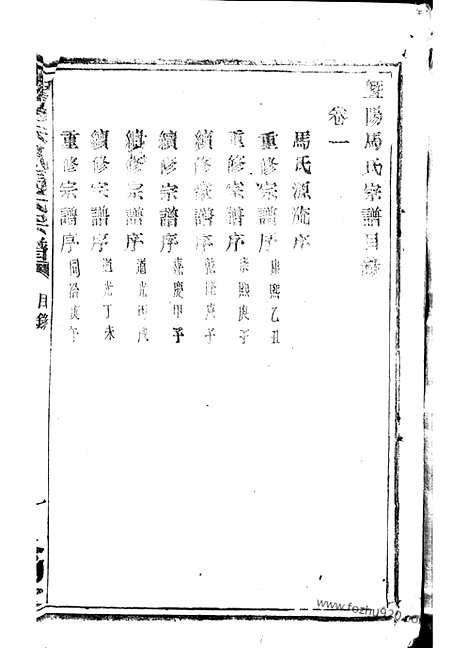 暨陽馬氏宗譜目錄
卷一
馬氏源流序
重修宗譜序 康熙乙丑
重修宗譜序 康熙庚子
續修宗譜序 乾隆庚子
續修宗譜序 嘉慶甲子
續修宗譜序 道光丙戌
續修宗譜序 道光丁未
重修宗譜序 同治庚午
目錄
一
www.fozhu920.com